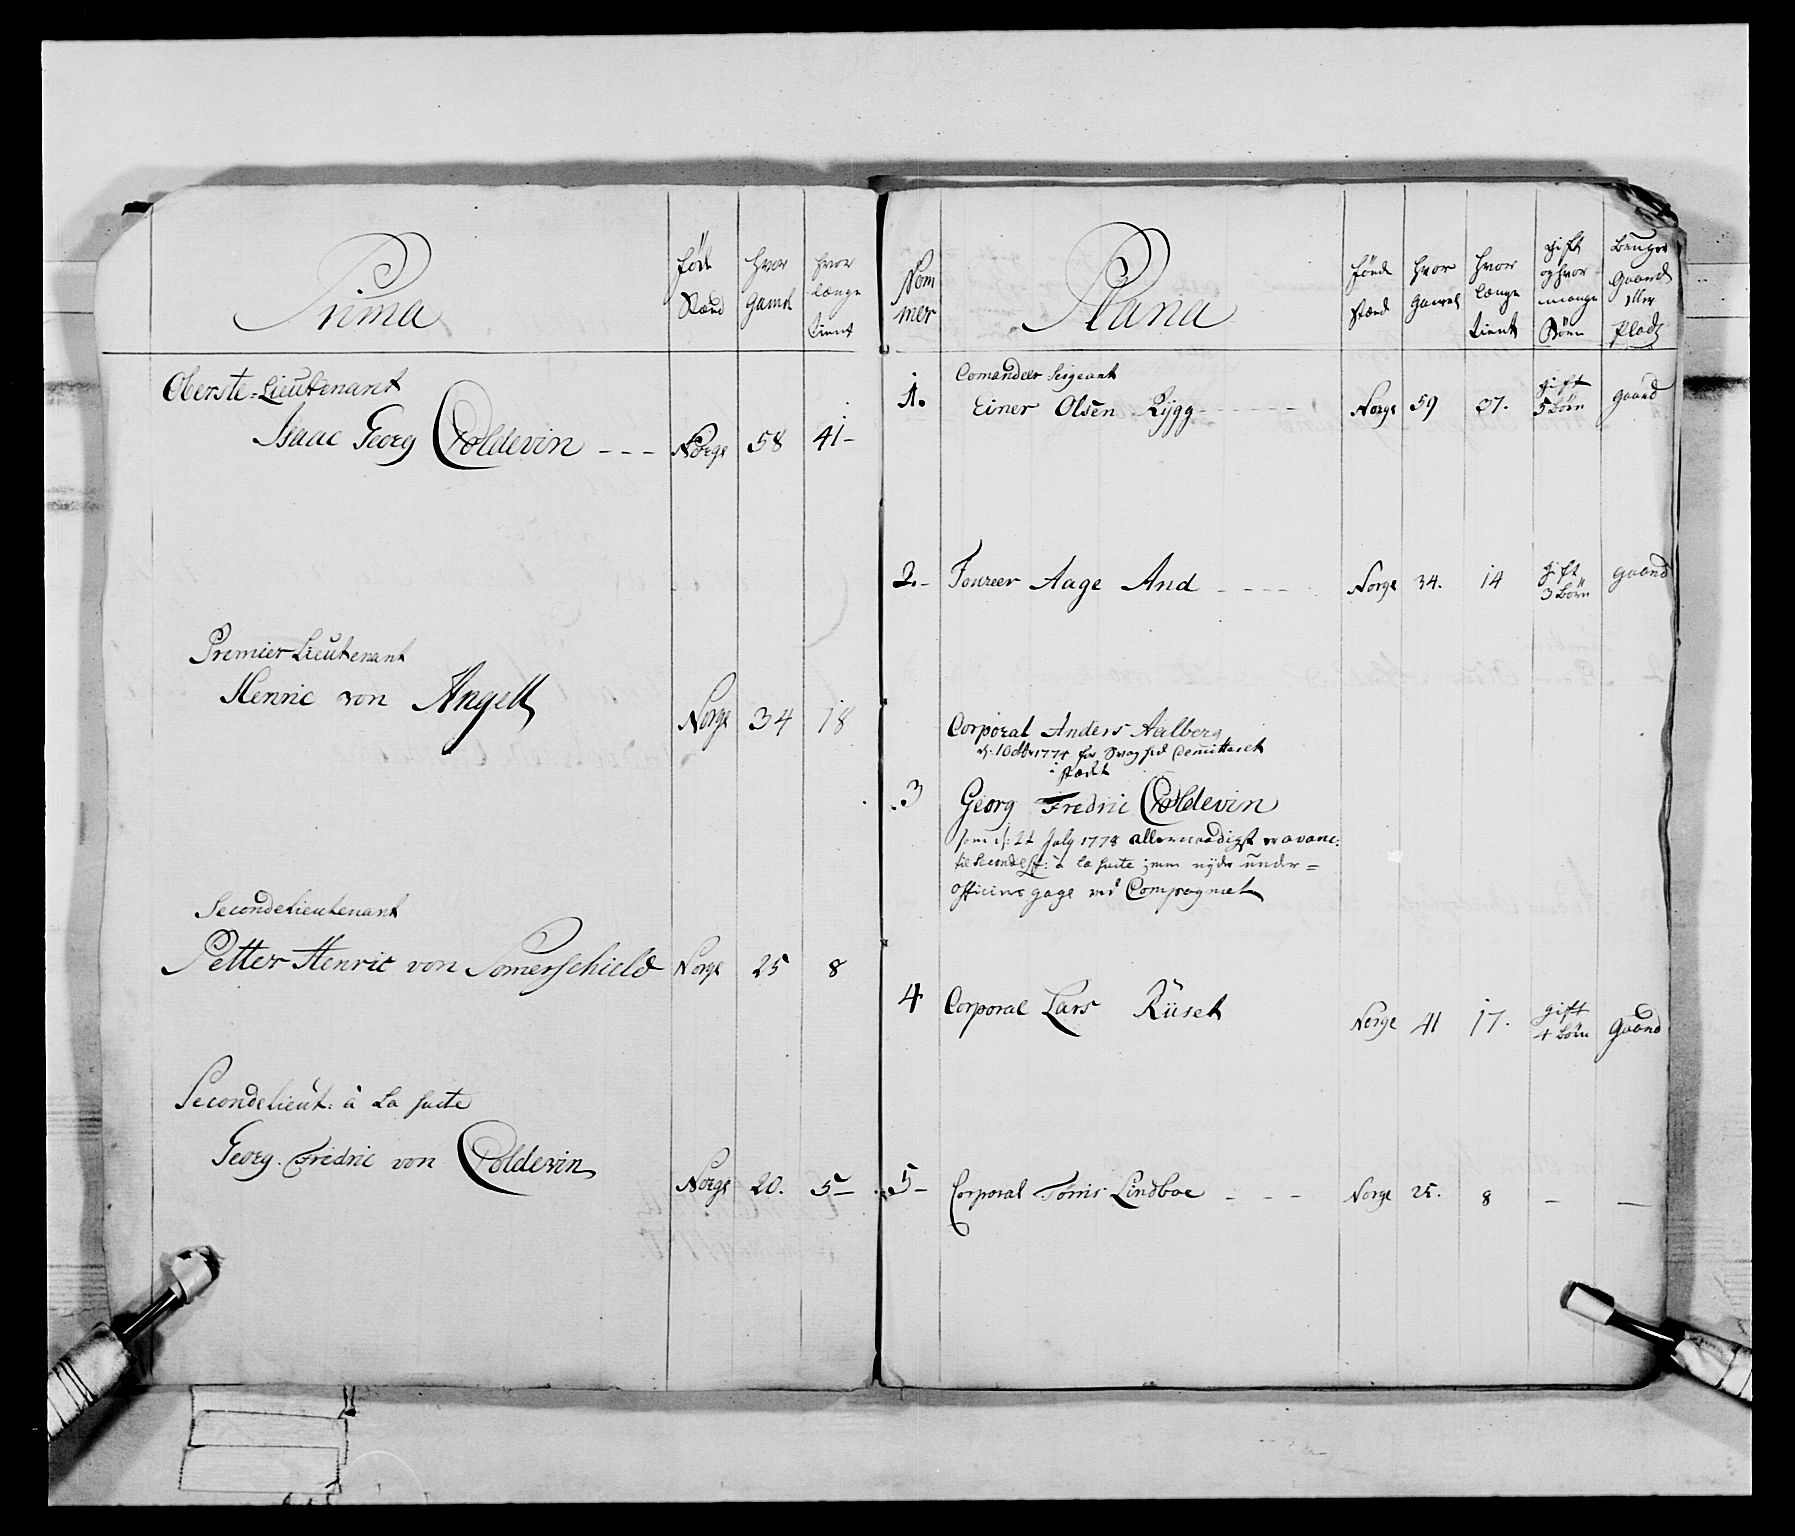 Prima
Fød
Stæd
Hvor
gamel
Hvor
længe
tient
Oberste-Lieutenant
Isaac Georg Coldevin - - - Norge 58 41 -
Premier Lieutenant
Henric von Angell Norge 34 18
Secondelieutenant
Petter Henric von Somerschield Norge 25 8
Secondelieut: à La Suite
Georg Fridric von Coldevin Norge 20. 5 -
Nom
mer
Plana
Føde
Stæd
Hvor
gamel
Hvor
længe
tient
gift
og hvor
mange
Børn
Gaard
eller
Plads
Comandeer Sergeant
1. Einer Olsen Rÿgg - - - - - - Norge 59 37. gift 5 Børn gaard
2. - Foureer Aage And - - - - Norge 34. 14 gift 3 Børn gaard
Corporal Anders Aalberg
1774 for Svaghed Demitteret
i stædet
3 Georg Fredric Coldevin
som d: July 1778 allernaadigst er avanc:
til Secondelt: a la suite, men nyder under=
officiers gage ved Compagniet
4 Corporal Lars Rüset Norge 41 17. gift 4 Børn gaard
5 - Corporal Tørris Lindboe - - - Norge 25. 8 - -